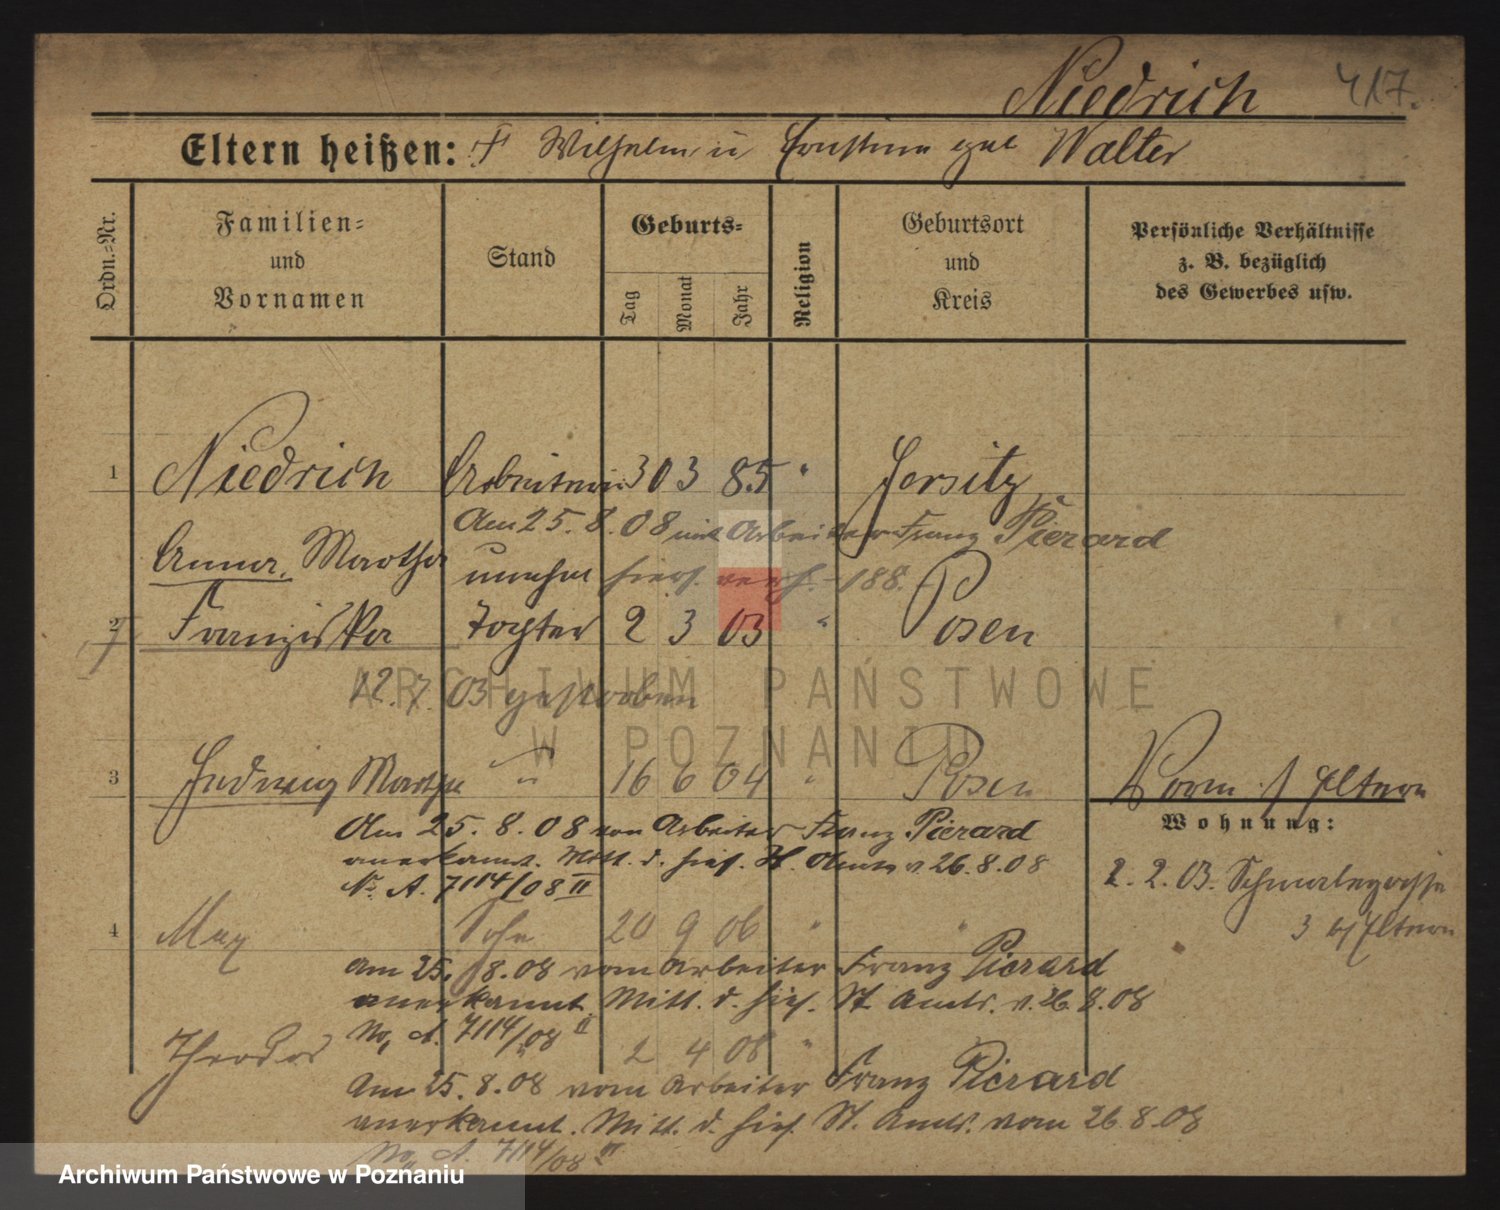 Niedrich 417.
Eltern heißen: † Wilhelm u Ernstine geb Walter
Ordn.-Nr.
Familien-
und
Vornamen
Stand
Geburts-
Tag
Monat
Jahr
Religion
Geburtsort
und
Kreis
Persönliche Verhältnisse
z. B. bezüglich
des Gewerbes usw.
1 Niedrich Arbeiterin 30 3 85 " Jersitz
Am 25. 8. 08 mit Arbeiter Franz Pierard
Anna, Martha
hies. verh. 188.
2 Franziska Tochter 2 3 03 " Posen
12. 7. 03 gestorben
3 Hedwig Martha " 16 6 04 " Posen
Am 25. 8. 08 von Arbeiter Franz Pierard
anerkannt. Mitt. d. hies. St. Amts v. 26. 8. 08
No. A. 7114/08 II
Wohnung:
2. 2. 03.
3 b/Eltern
4 Max Sohn 20 9 06 " "
Am 25. 8. 08 vom Arbeiter Franz Pierard
anerkannt. Mitt. d. hies. St. Amts. v. 26. 8. 08
No. A. 7114/08 II
Theodor " 2 4 08 "
Am 25. 8. 08 vom Arbeiter Franz Pierard
anerkannt. Mitt. d. hies. St. Amts. vom 26. 8. 08
No. A. 7114/08 II
ARCHIWUM PAŃSTWOWE
W POZNANIU
Archiwum Państwowe w Poznaniu